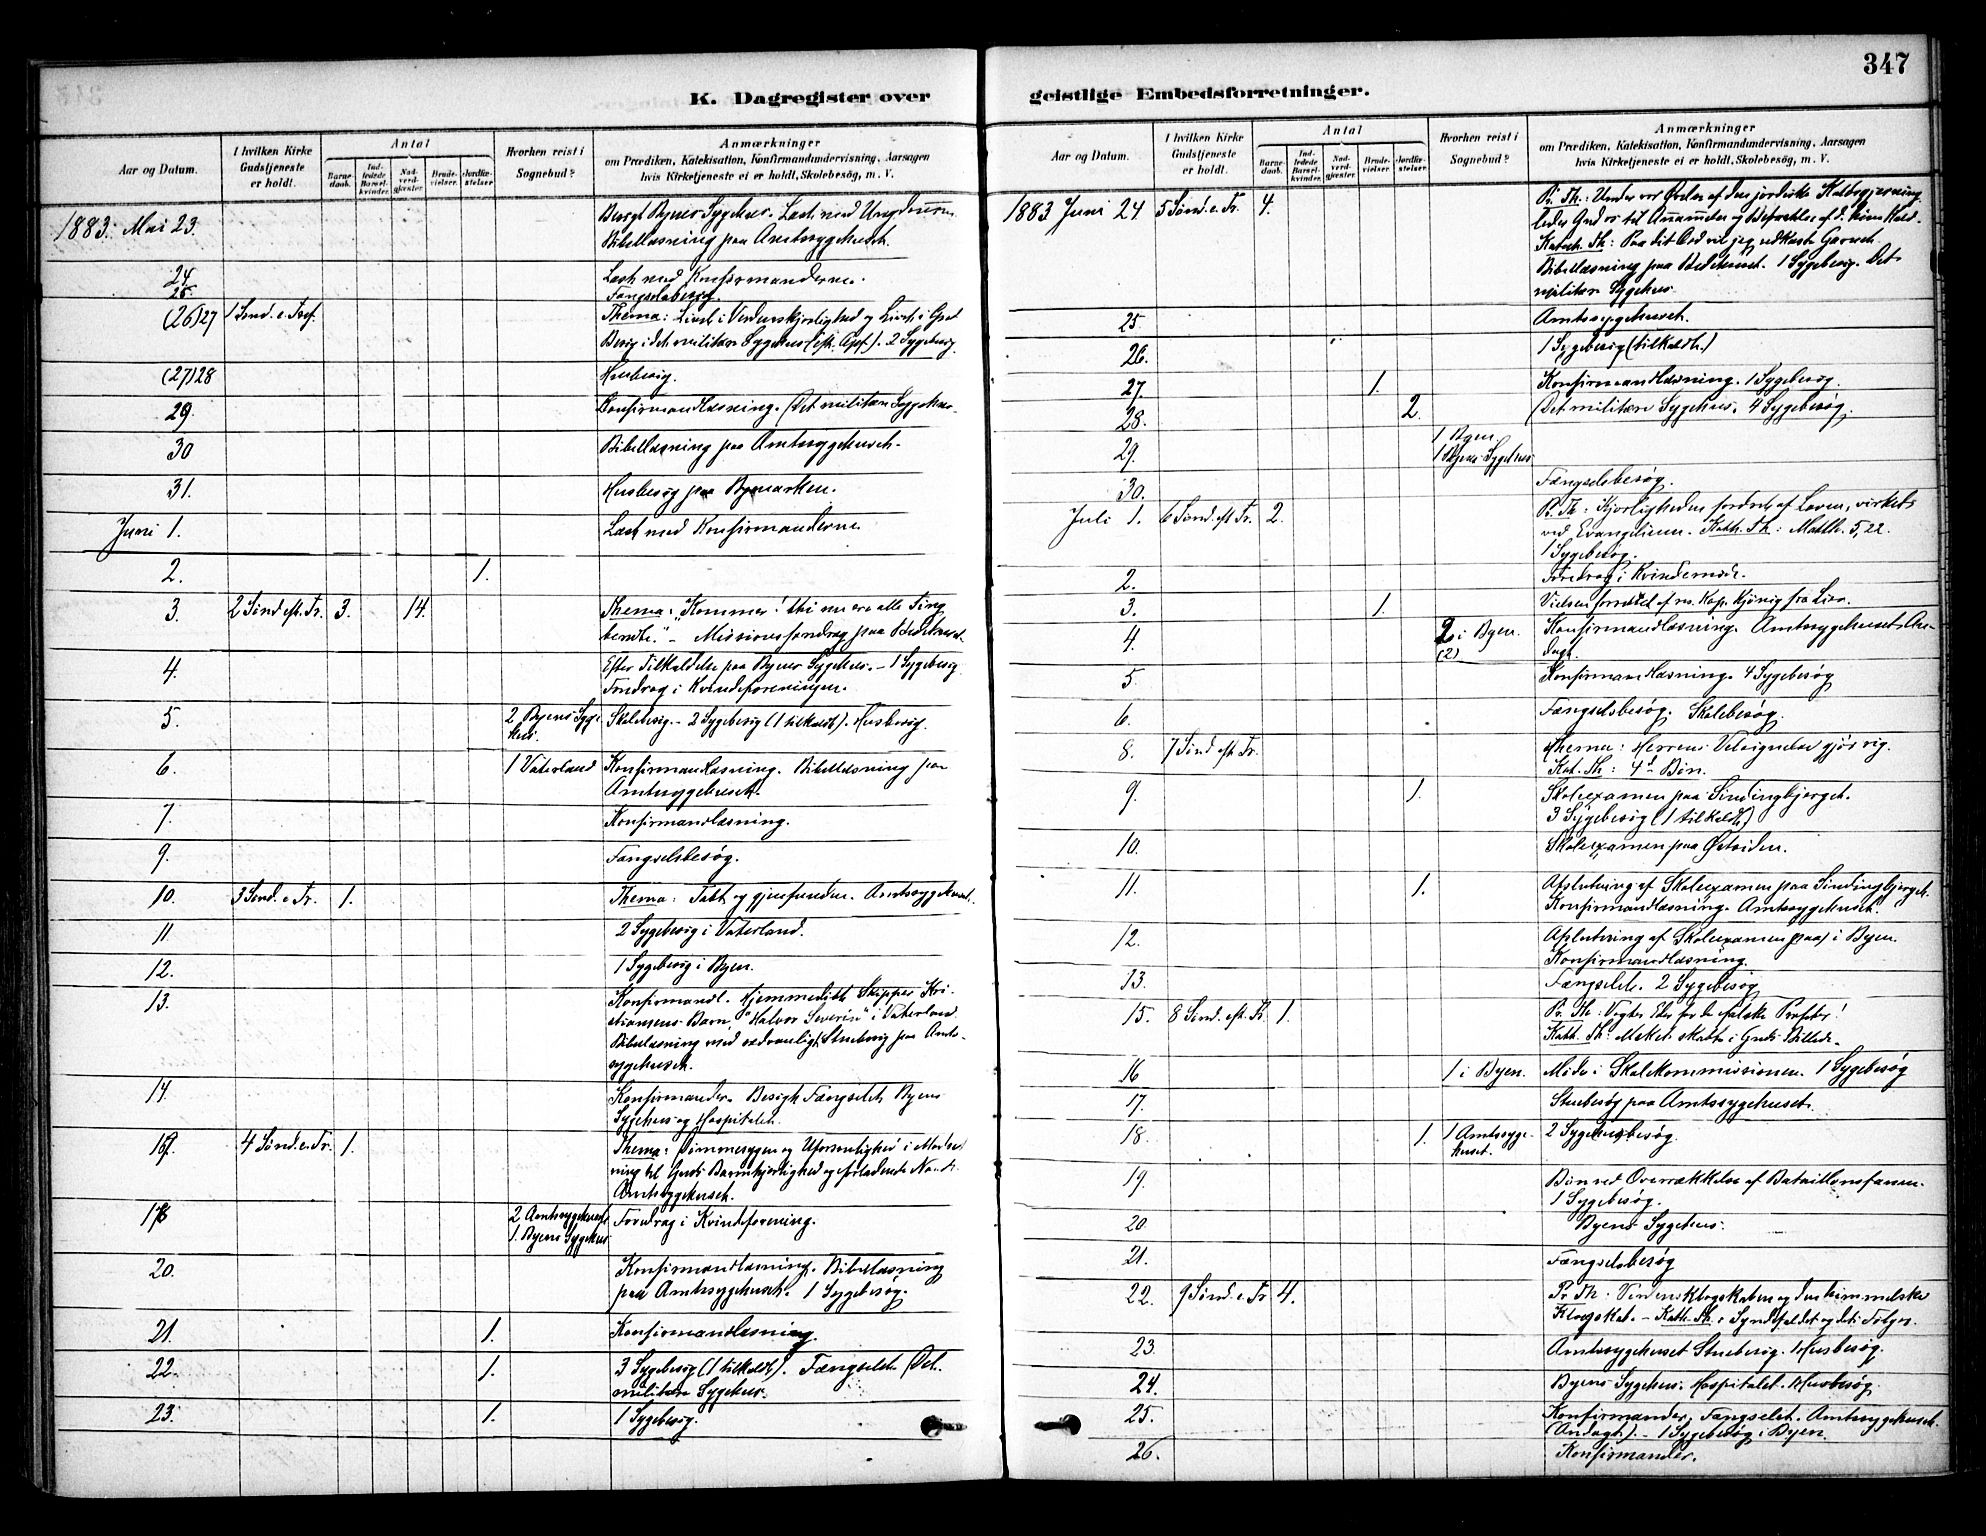 347
K. Dagregister over
geistlige Embedsforretninger.
Aar og Datum.
I hvilken Kirke Gudstjeneste er holdt.
Antal
Barnedaab.
Indledede Barselkvinder.
Nadverdgjæster.
Brudevielser.
Jordfæstelser
Hvorhen reist i Sognebud?
Anmærkninger
om Prædiken, Katekisation, Konfirmandundervisning, Aarsagen
hvis Kirketjeneste ei er holdt, Skolebesøg, m. V.
1883. Mai 23.
Besøgt Byens Sygehus. Læst med Ungdommen
Bibellæsning paa Amtssygehuset.
24
Læst med Konfirmanderne.
25
Fængselsbesøg.
(26) 27 1 Sønd. e. Tref.
Thema: Livet i Verdenskjærlighed og Livet i Gud
Besøg i det militære Sygehus (eft. Opf.). 2 Sygebesøg
(27) 28
Husbesøg.
29
Konfirmandlæsning. (Det militære Sygehus.
30
Bibellæsning paa Amtssygehuset.
31.
Husbesøg paa Bymarken.
Juni 1.
Læst med Konfirmanderne
2. 1.
3. 2 Sønd eft. Tr. 3. 14.
Thema: "Kommer! thi nu ere alle Ting
beredte." - Missionsforedrag paa Bedehuset.
4.
Efter Tilkaldelse paa Byens Sygehus. - 1 Sygebesøg
Foredrag i Kvindeforeningen.
5. 2 Byens Syge-
hus.
Skolebesøg. - 2 Sygebesøg (1 tilkaldt). Husbesøg.
6. 1 Vaterland
Konfirmandlæsning. Bibellæsning paa
Amtssygehuset.
7.
Konfirmandlæsning.
9.
Fængselsbesøg.
10. 3 Sønd. e. Tr. 1.
Thema: Tabt og gjenfunden. Amtssygehuset.
11.
2 Sygebesøg i Vaterland.
12.
1 Sygebesøg i Byen.
13.
Konfirmandl. Hjemmedøbt Skipper Kri-
stiansens Barn "Halvor Severin" i Vaterland.
Bibellæsning med sedvanligt Stuebesøg paa Amts-
sygehuset.
14.
Konfirmander. Besøgt Fængselet, Byens
Sygehus og Hospitalet.
4 Sønd. e. Tr. 1.
Thema: Dømmesyge og Uforsonlighed i
ning til Guds Barmhjertighed og forladende Naade.
Amtssygehuset.
18 2 Amtssygehuset
1. Byens Sygehus
Foredrag i Kvindeforening.
20.
Konfirmandlæsning. Bibellæsning
paa Amtssygehuset. 1 Sygebesøg.
21. 1.
Konfirmandlæsning.
22. 1.
3 Sygebesøg (1 tilkaldt). Fængselet. Det
militære Sygehus.
23. 1.
1 Sygebesøg.
Aar og Datum.
I hvilken Kirke Gudstjeneste er holdt.
Antal
Barnedaab.
Indledede Barselkvinder.
Nadverdgjæster.
Brudevielser.
Jordfæstelser.
Hvorhen reist i Sognebud?
Anmærkninger
om Prædiken, Katekisation, Konfirmandundervisning, Aarsagen
hvis Kirketjeneste ei er holdt, Skolebesøg, m. V.
1883 Juni 24. 5 Sønd. e. Tr. 4.
Pr. Th.: Under vor Øvelse af den jordiske Kaldsgjerning
leder Gud os til Annammelse og Befæstelse af d. himm. Kald.
Katech. Th: Paa dit Ord vil jeg udkaste Garnet.
Bibellæsning paa Bedehuset. 1 Sygebesøg. Det
militære Sygehus.
25.
Amtssygehuset.
26.
1 Sygebesøg (tilkaldt.)
27. 1.
Konfirmandlæsning. 1 Sygebesøg.
28. 2.
(Det militære Sygehus. 4 Sygebesøg.
29. 1 Byen
1 Byens Sygehus
30.
Fængselsbesøg.
Juli 1. 6 Sønd. eft Tr. 2.
Pr. Th: Kjærligheden fordret af Loven, virket
ved Evangelium. Kath. Th.: Matth. 5, 22.
1 Sygebesøg.
2.
Foredrag i Kvindemøde.
3. 1.
Vielsen forrettet af res. Kap. Kjønig fra Lier.
4. 2 i Byen.
(2)
Konfirmandlæsning. Amtssygehuset An-
dagt.
5.
Konfirmandlæsning. 4 Sygebesøg
6.
Fængselsbesøg. Skolebesøg.
8. 7 Sønd eft Tr.
Thema: Herrens Velsignelse gjør rig.
Kat. Th: 4de Bøn.
9. 1.
Skoleexamen paa Sindingbjerget.
3 Sygebesøg (1 tilkaldt)
10.
Skoleexamen paa Østsiden.
11. 1.
Afslutning af Skoleexamen paa Sindingbjerget.
Konfirmandlæsning. Amtssygehuset.
12.
Afslutning af Skoleexamen (paa) i Byen.
Konfirmandlæsning.
13.
Fængselet. 2 Sygebesøg
15. 8 Sønd. eft. Tr. 1.
Pr. Th: Vogter Eder for de falske Profeter!
Kath. Th: Msket skabt i Guds Billede.
16 1 i Byen.
Møde i Skolekommissionen. 1 Sygebesøg
17.
Stuebesøg paa Amtssygehuset.
18. 1. 1 Amtssyge-
huset.
2 Sygehusbesøg.
19.
Bøn ved Overrækkelse af Bataillonsfanen.
1 Sygebesøg.
20.
Byens Sygehus.
21.
Fængselsbesøg
22. 9 Sønd. e. Tr 4.
Pr. Th: Verdens Klogskaben og den himmelske
Klogskab. - Kath. Th.: Syndefaldet og dets Følger.
23.
Amtssygehuset Stuebesøg. 1 Husbesøg.
24.
Byens Sygehus. Hospitalet. 1 Husbesøg.
25.
Konfirmander, Fængselet. Amtssygehuset
(Andagt). - 1 Sygebesøg i Byen.
26.
Konfirmander.